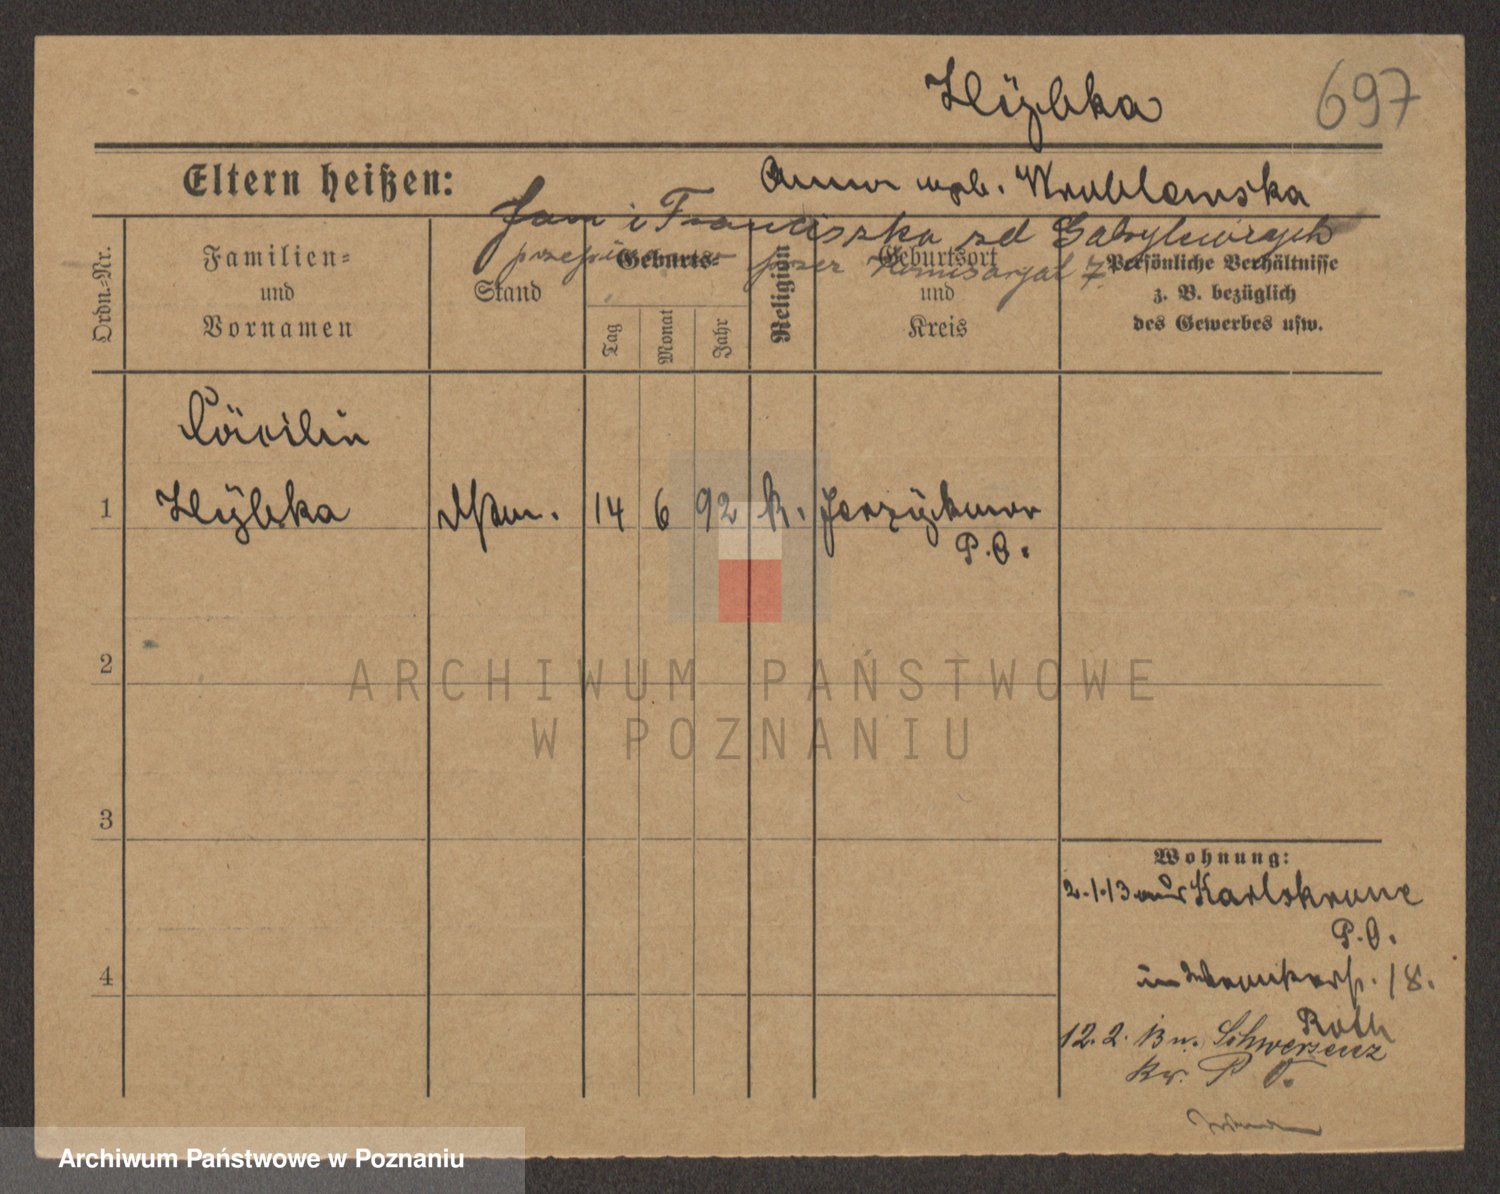 Hÿbka
697
Eltern heißen:
Anna geb. Wrublewska
Jan i Franciszka zd Gabrylewiczych
przez Komisarjat 7.
Ordn.-Nr.
Familien-
und
Vornamen
Stand
Geburts-
Tag
Monat
Jahr
Religion
Geburtsort
und
Kreis
Persönliche Verhältnisse
z. B. bezüglich
des Gewerbes usw.
Cäcilie
1 Hÿbka 14 6 92 k. Jerzÿkowo
P.O.
2
3
4
Wohnung:
2.1.13 aus Karlskrone
P.O.
in 18.
Roth
12.2. 13 n. Schwersenz
Kr. P O.
ARCHIWUM PAŃSTWOWE
W POZNANIU
Archiwum Państwowe w Poznaniu